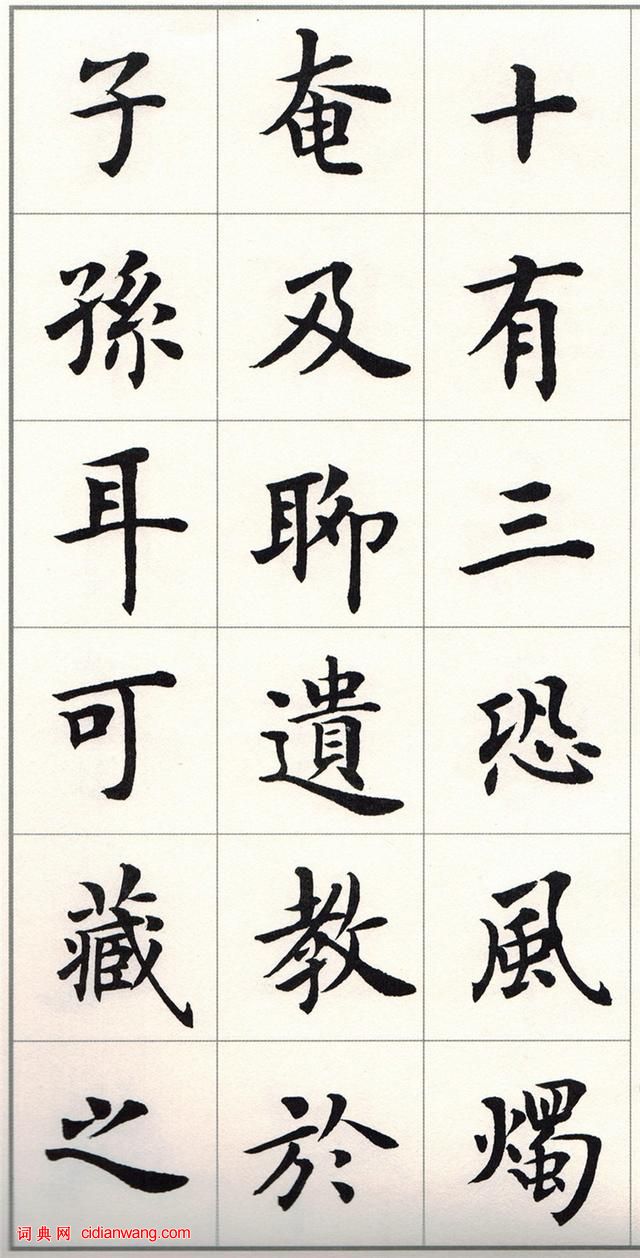 十有三恐風燭
奄及聊遺教於
子孫耳可藏之
词典网 cidianwang.com